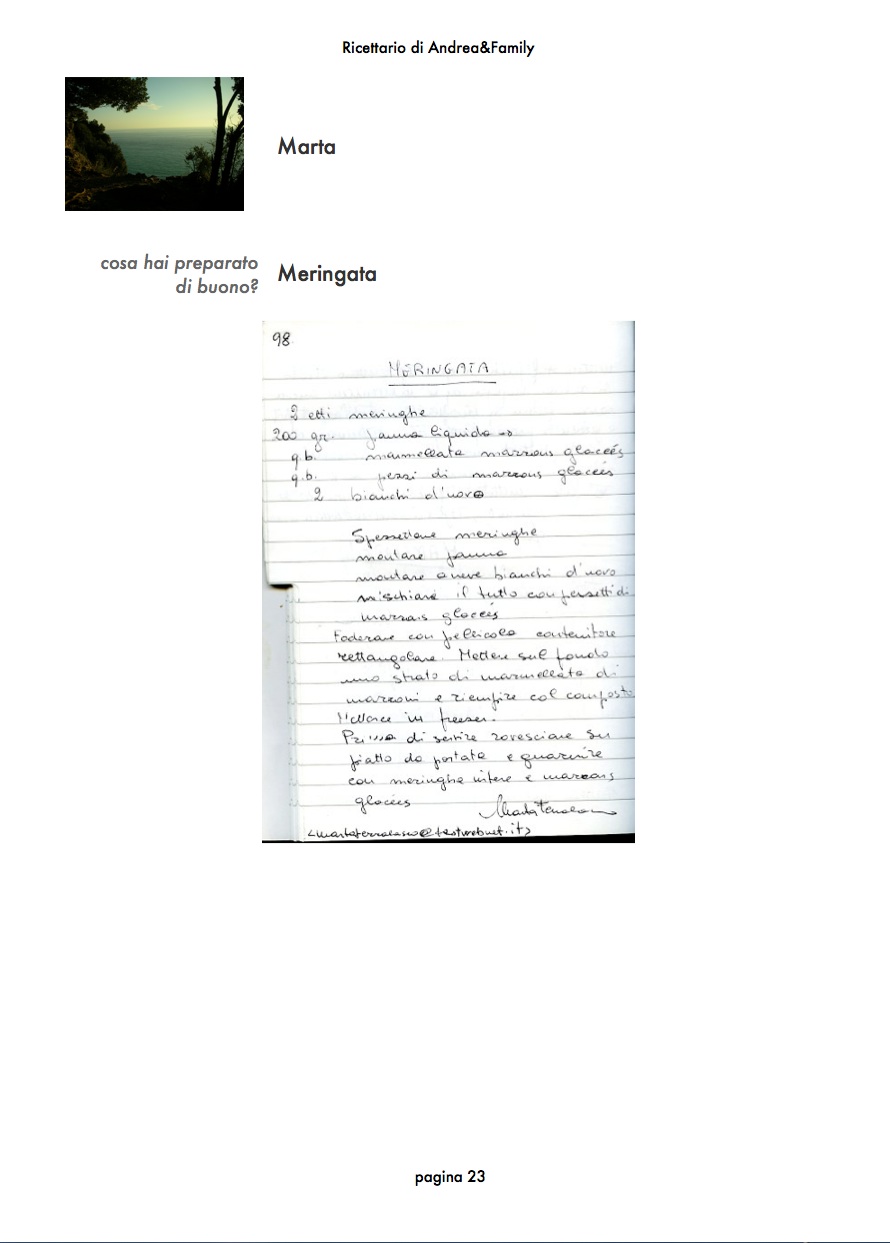 Ricettario di Andrea&Family
Marta
cosa hai preparato
di buono?
Meringata
98
MERINGATA
2 etti meringhe
200 gr. panna liquida
q.b. marmellata marrons glacées
q.b. pezzi di marrons glacées
2 bianchi d'uovo
Spezzettare meringhe
montare panna
montare a neve bianchi d'uovo
mischiare il tutto con pezzetti di
marrons glacées
Foderare con pellicola contenitore
rettangolare. Mettere sul fondo
uno strato di marmellata di
marroni e riempire col composto
Mettere in freezer.
Prima di servire rovesciare su
piatto da portata e guarnire
con meringhe intere e marrons
glacées
Marta
pagina 23